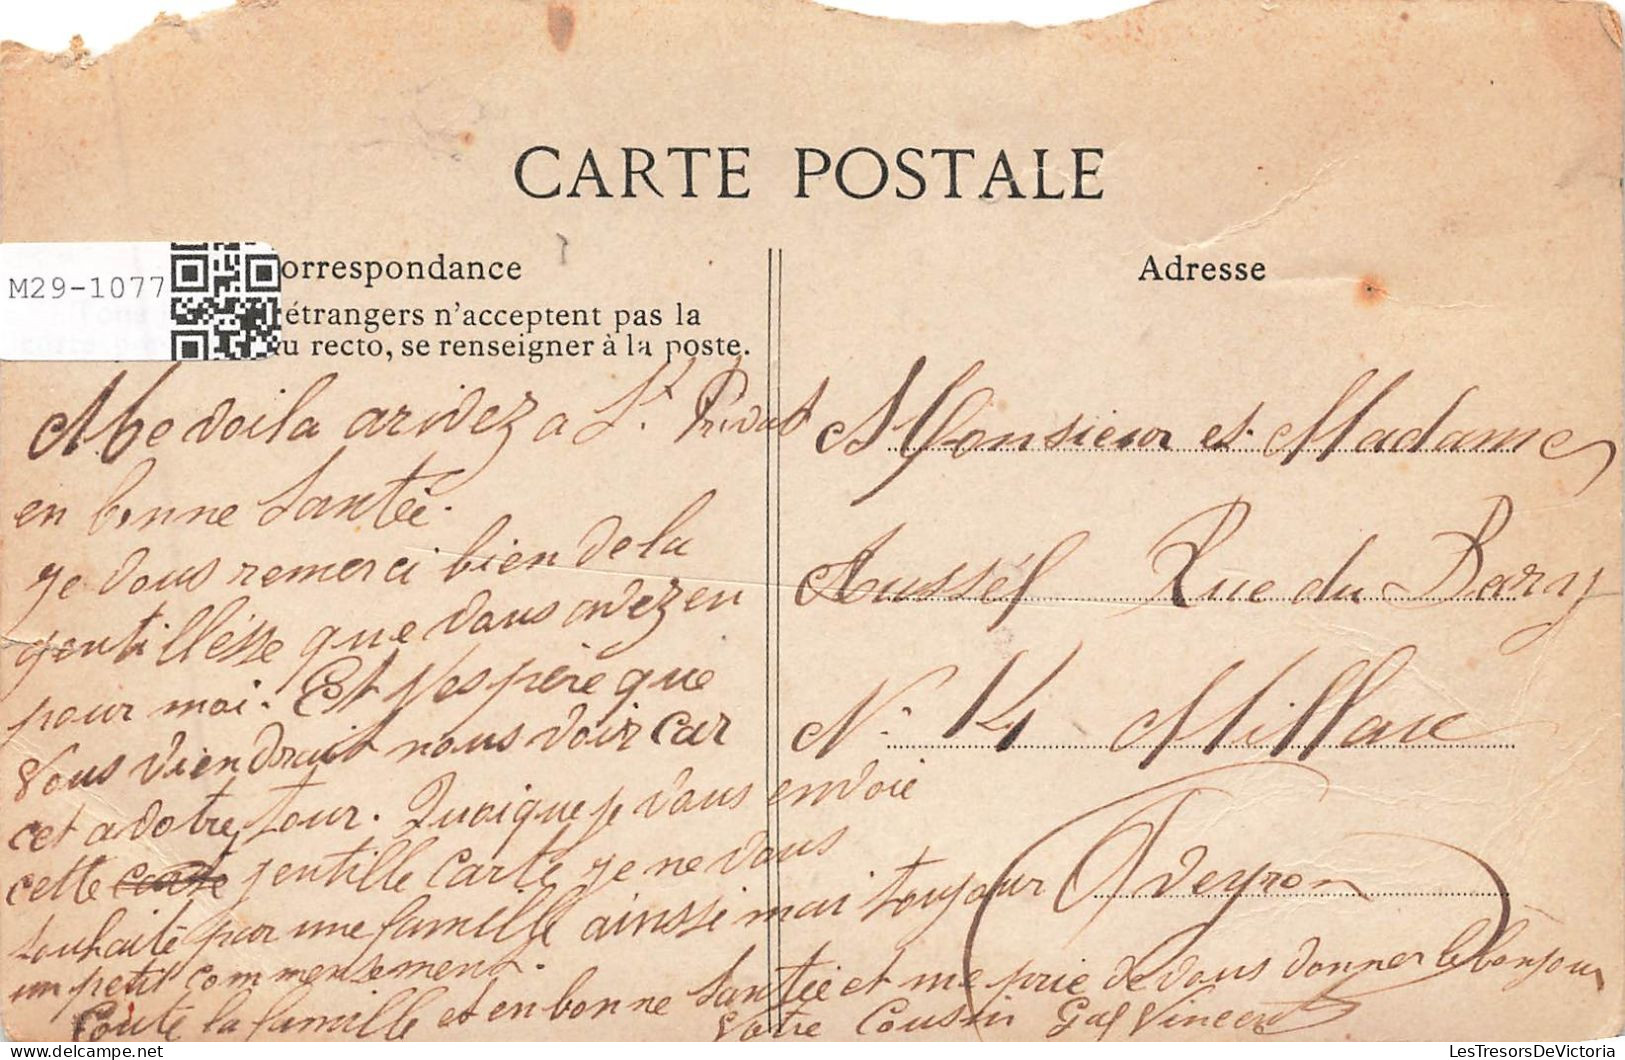 CARTE POSTALE
M29-1077
orrespondance
étrangers n'acceptent pas la
u recto, se renseigner à la poste.
Adresse
Me voila arivez a St. Privat
en bonne Santée.
je vous remerci bien de la
gentillésse que vous avez eu
pour moi. Et j'espère que
vous viendrait nous voir car
cet a votre tour. Quoique je vous envoie
cette carte gentille Carte je ne vous
souhaite par une famille ainssi mai toujour
un petit commensement.
Toute la famille et en bonne Santée et me prie de vous donner le bonjour
Votre Cousin Gal Vincent
Monsieur et Madame
Aussél Rue du Barry
N. 14 Millau
Aveyron
LesTresorsDeVictoria